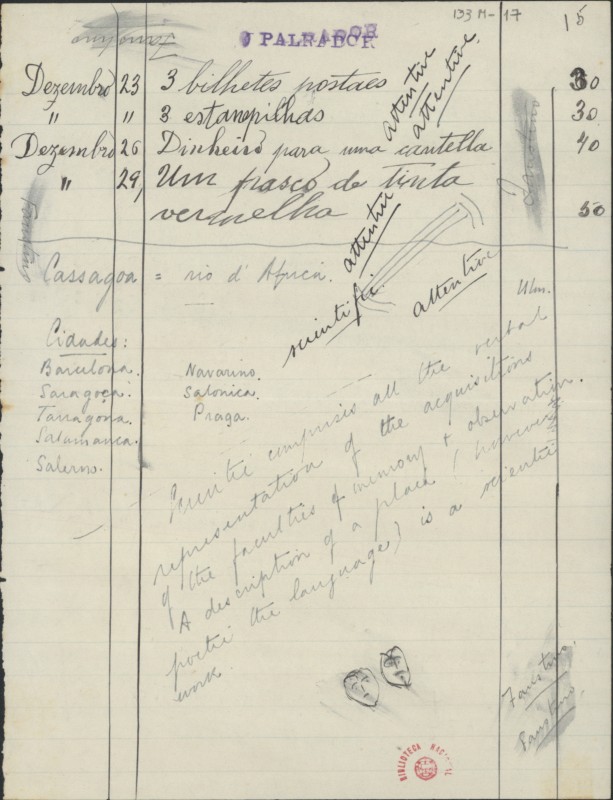 133 M-17
15
O PALRADOR
Dezembro 23 3 bilhetes postaes 30
" " 3 estampilhas 30
Dezembro 26 Dinheiro para uma cautella 40
" 29, Um frasco de tinta
vermelha 50
attentive
attentive
attentive
attentive
scientifi
Cassagoa = rio d'Africa.
Ulm.
Cidades:
Barcelona.
Saragoça.
Tarragona.
Salamanca.
Salerno.
Navarino.
Salonica.
Praga.
comprises all the verbal
representation of the acquisitions
of the faculties of memory & observation.
A description of a place (however
poetic the language) is a scientific
work.
Faustino
Faustino
BIBLIOTECA NACIONAL